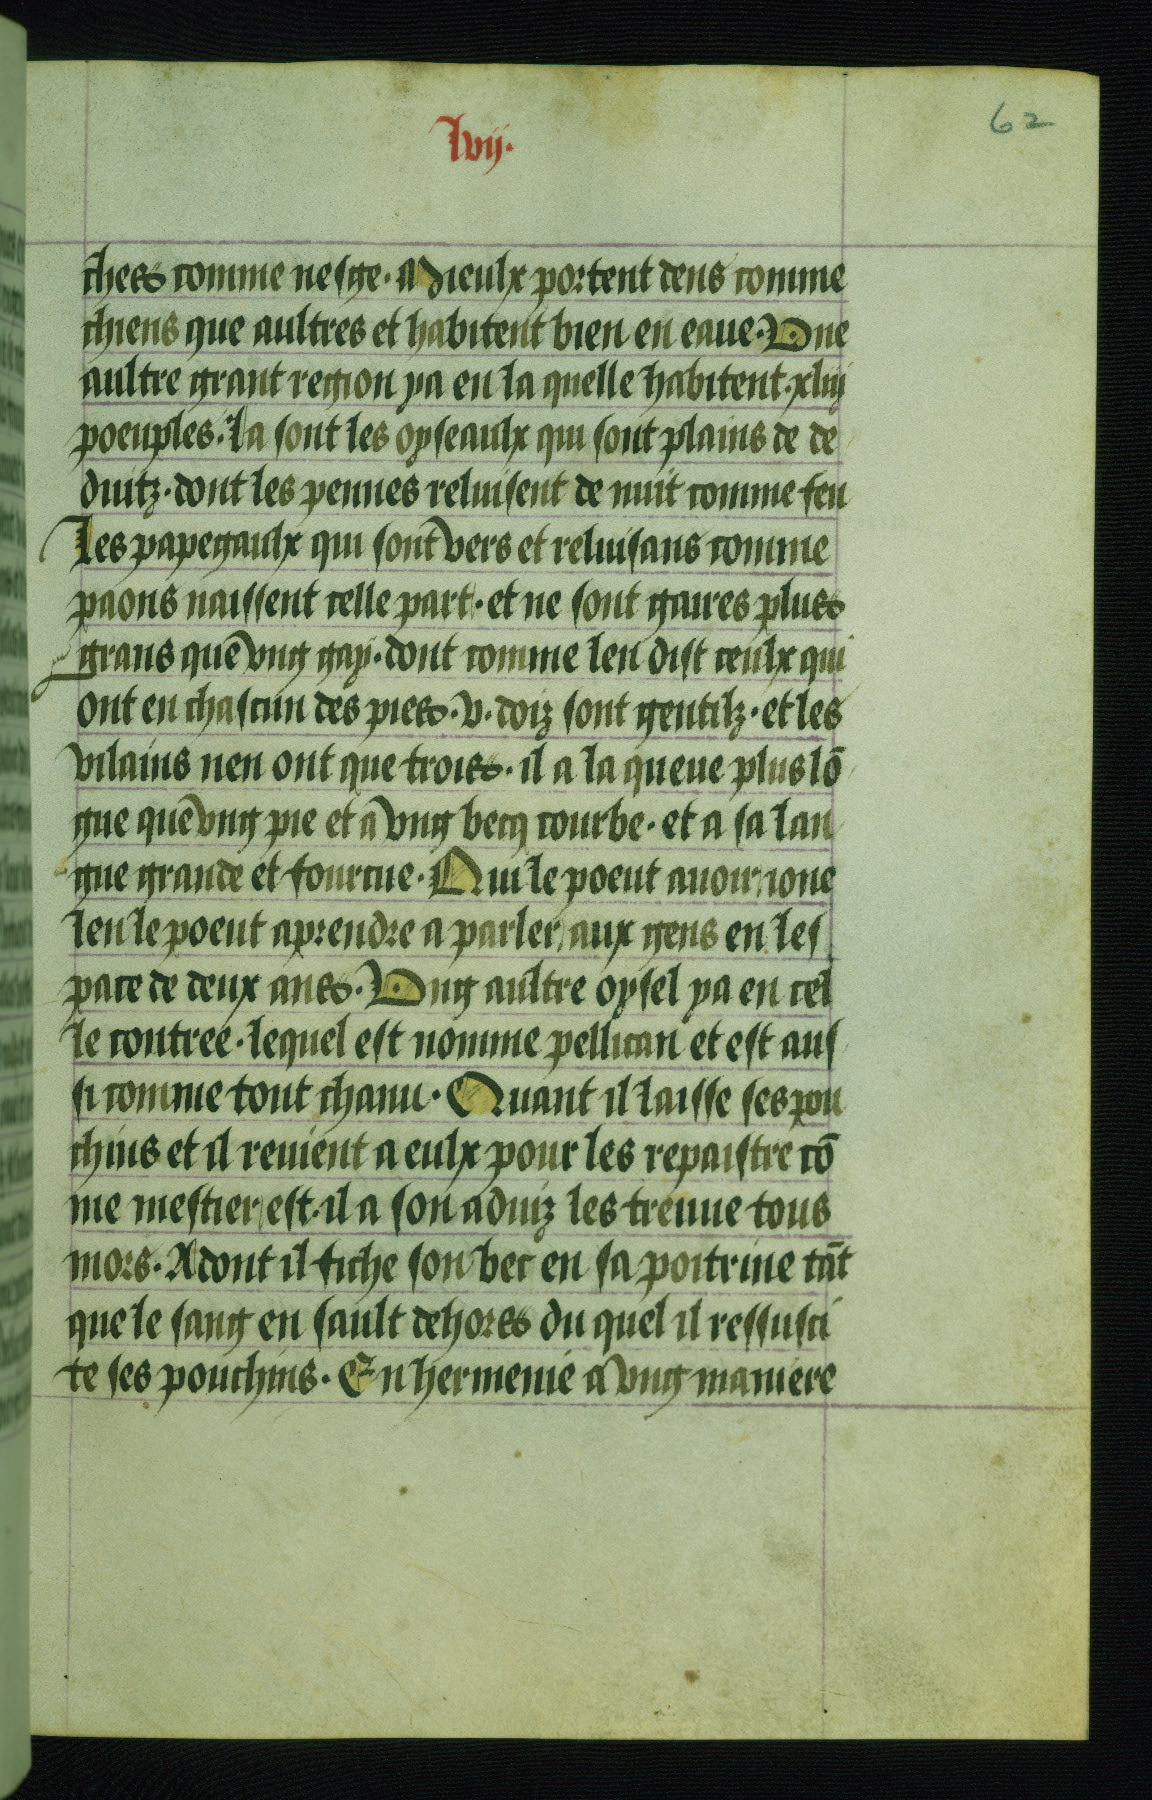 lvij.
62
ches comme nesge. Mieulx portent dens comme
chiens que aultres et habitent bien en eaue. Vne
aultre grant region ya en la quelle habitent .xliij
poeuples. La sont les oyseaulx qui sont plains de de
duitz. dont les pennes reluisent de nuit comme feu
Les papegaulx qui sont vers et reluisans comme
paons naissent celle part. et ne sont gaires plus
grans que vng gay. dont comme len dist ceulx qui
ont en chascun des pies .v. doiz sont gentilz. et les
vilains nen ont que trois. il a la queue plus lō
gue que vng pie et a vng becq courbe. et a sa lan
gue grande et fourcue. Qui le poeut auoir ione
len le poeut aprendre a parler aux gens en les
pace de deux ans. Vng aultre oysel ya en cel
le contree. lequel est nomme pellican et est aus
si comme tout chanu. Quant il laisse ses pou
chins et il reuient a eulx pour les repaistre cō
me mestier est. il a son aduiz les treuue tous
mors. Adont il fiche son bec en sa poitrine tāt
que le sang en sault dehors du quel il ressusci
te ses pouchins. En hermenie a vng maniere